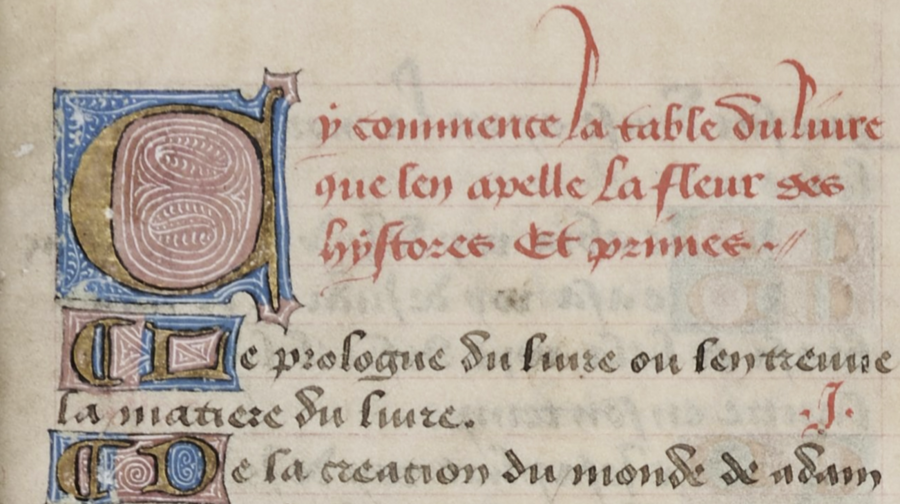 Cy commence la table du liure
que len apelle La fleur des
hystores Et primes
¶ Le prologue du liure ou len treuue
la matiere du liure. .I.
¶ De la creacion du monde de adam